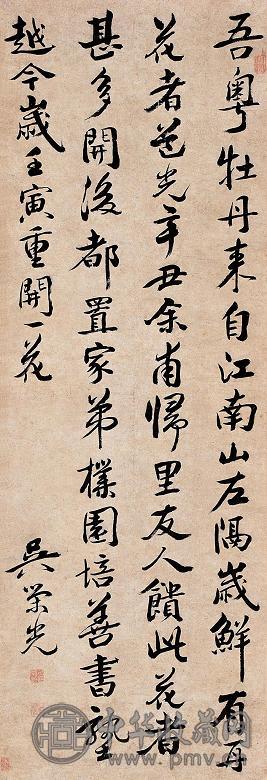 吾粵牡丹來自江南山左隔歲鮮有再
花者道光辛丑余甫歸里友人饋此花者
甚多開後都置家弟樸園培善書塾
越今歲壬寅重開一花
吳榮光
中华收藏网
www.pmv.